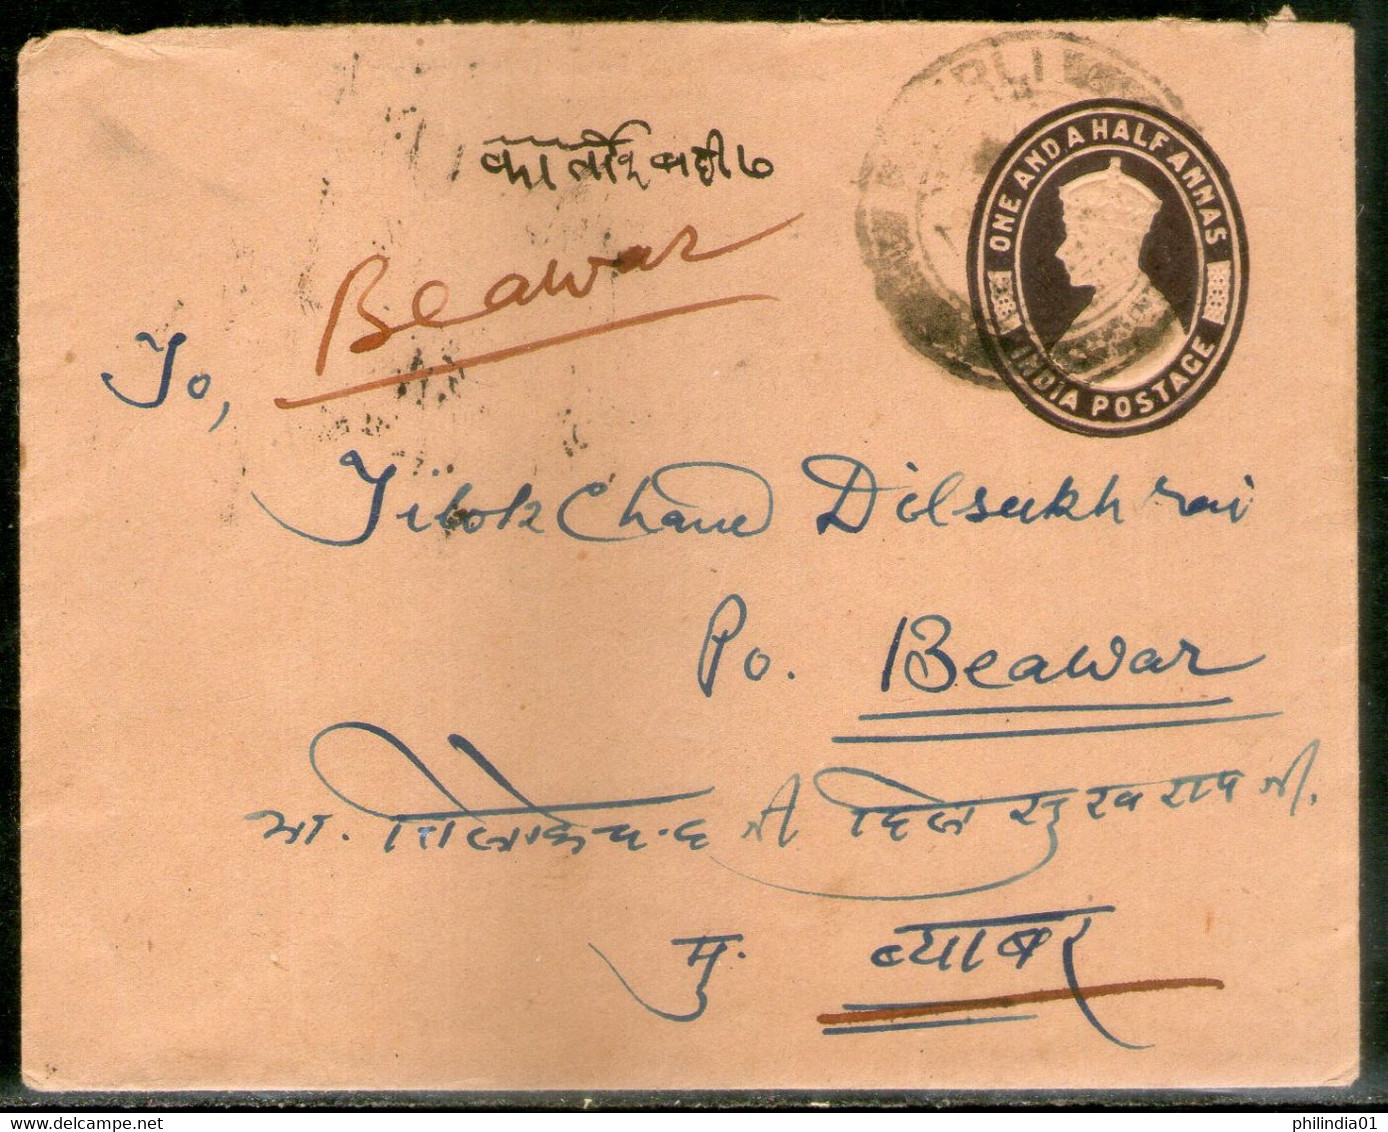 ONE AND A HALF ANNAS
INDIA POSTAGE
Beawar
To,
Tilok Chand Dilsukh rai
Po. Beawar
भा. तिलोकचन्द जी दिलसुखराय जी.
मु. ब्यावर
philindia01